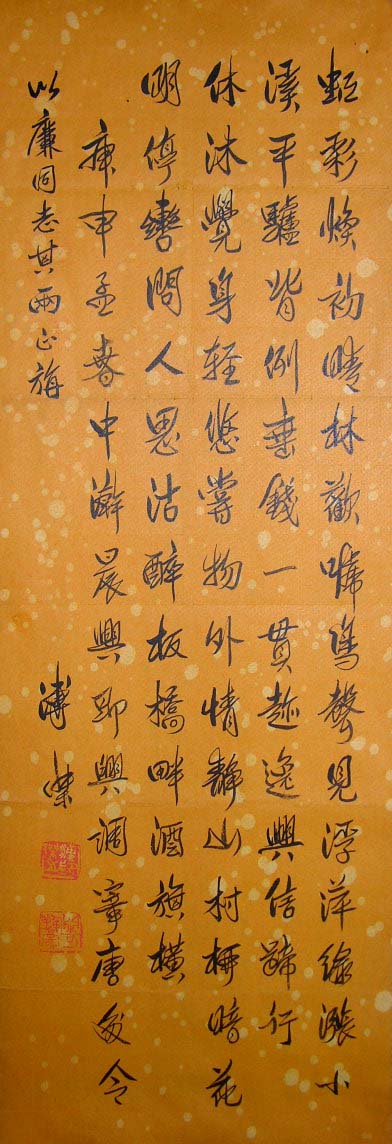 虹彩煥初晴林歡啼鳥聲見浮萍綠漲小
溪平驢背倒垂錢一貫趁逸興信蹄行
休沐覺身輕悠嘗物外情靜山村柳暗花
明停轡問人思沽醉板橋畔酒旗橫
庚申孟春中澣晨興即興調寄唐多令
以廉同志其兩正旃
溥傑